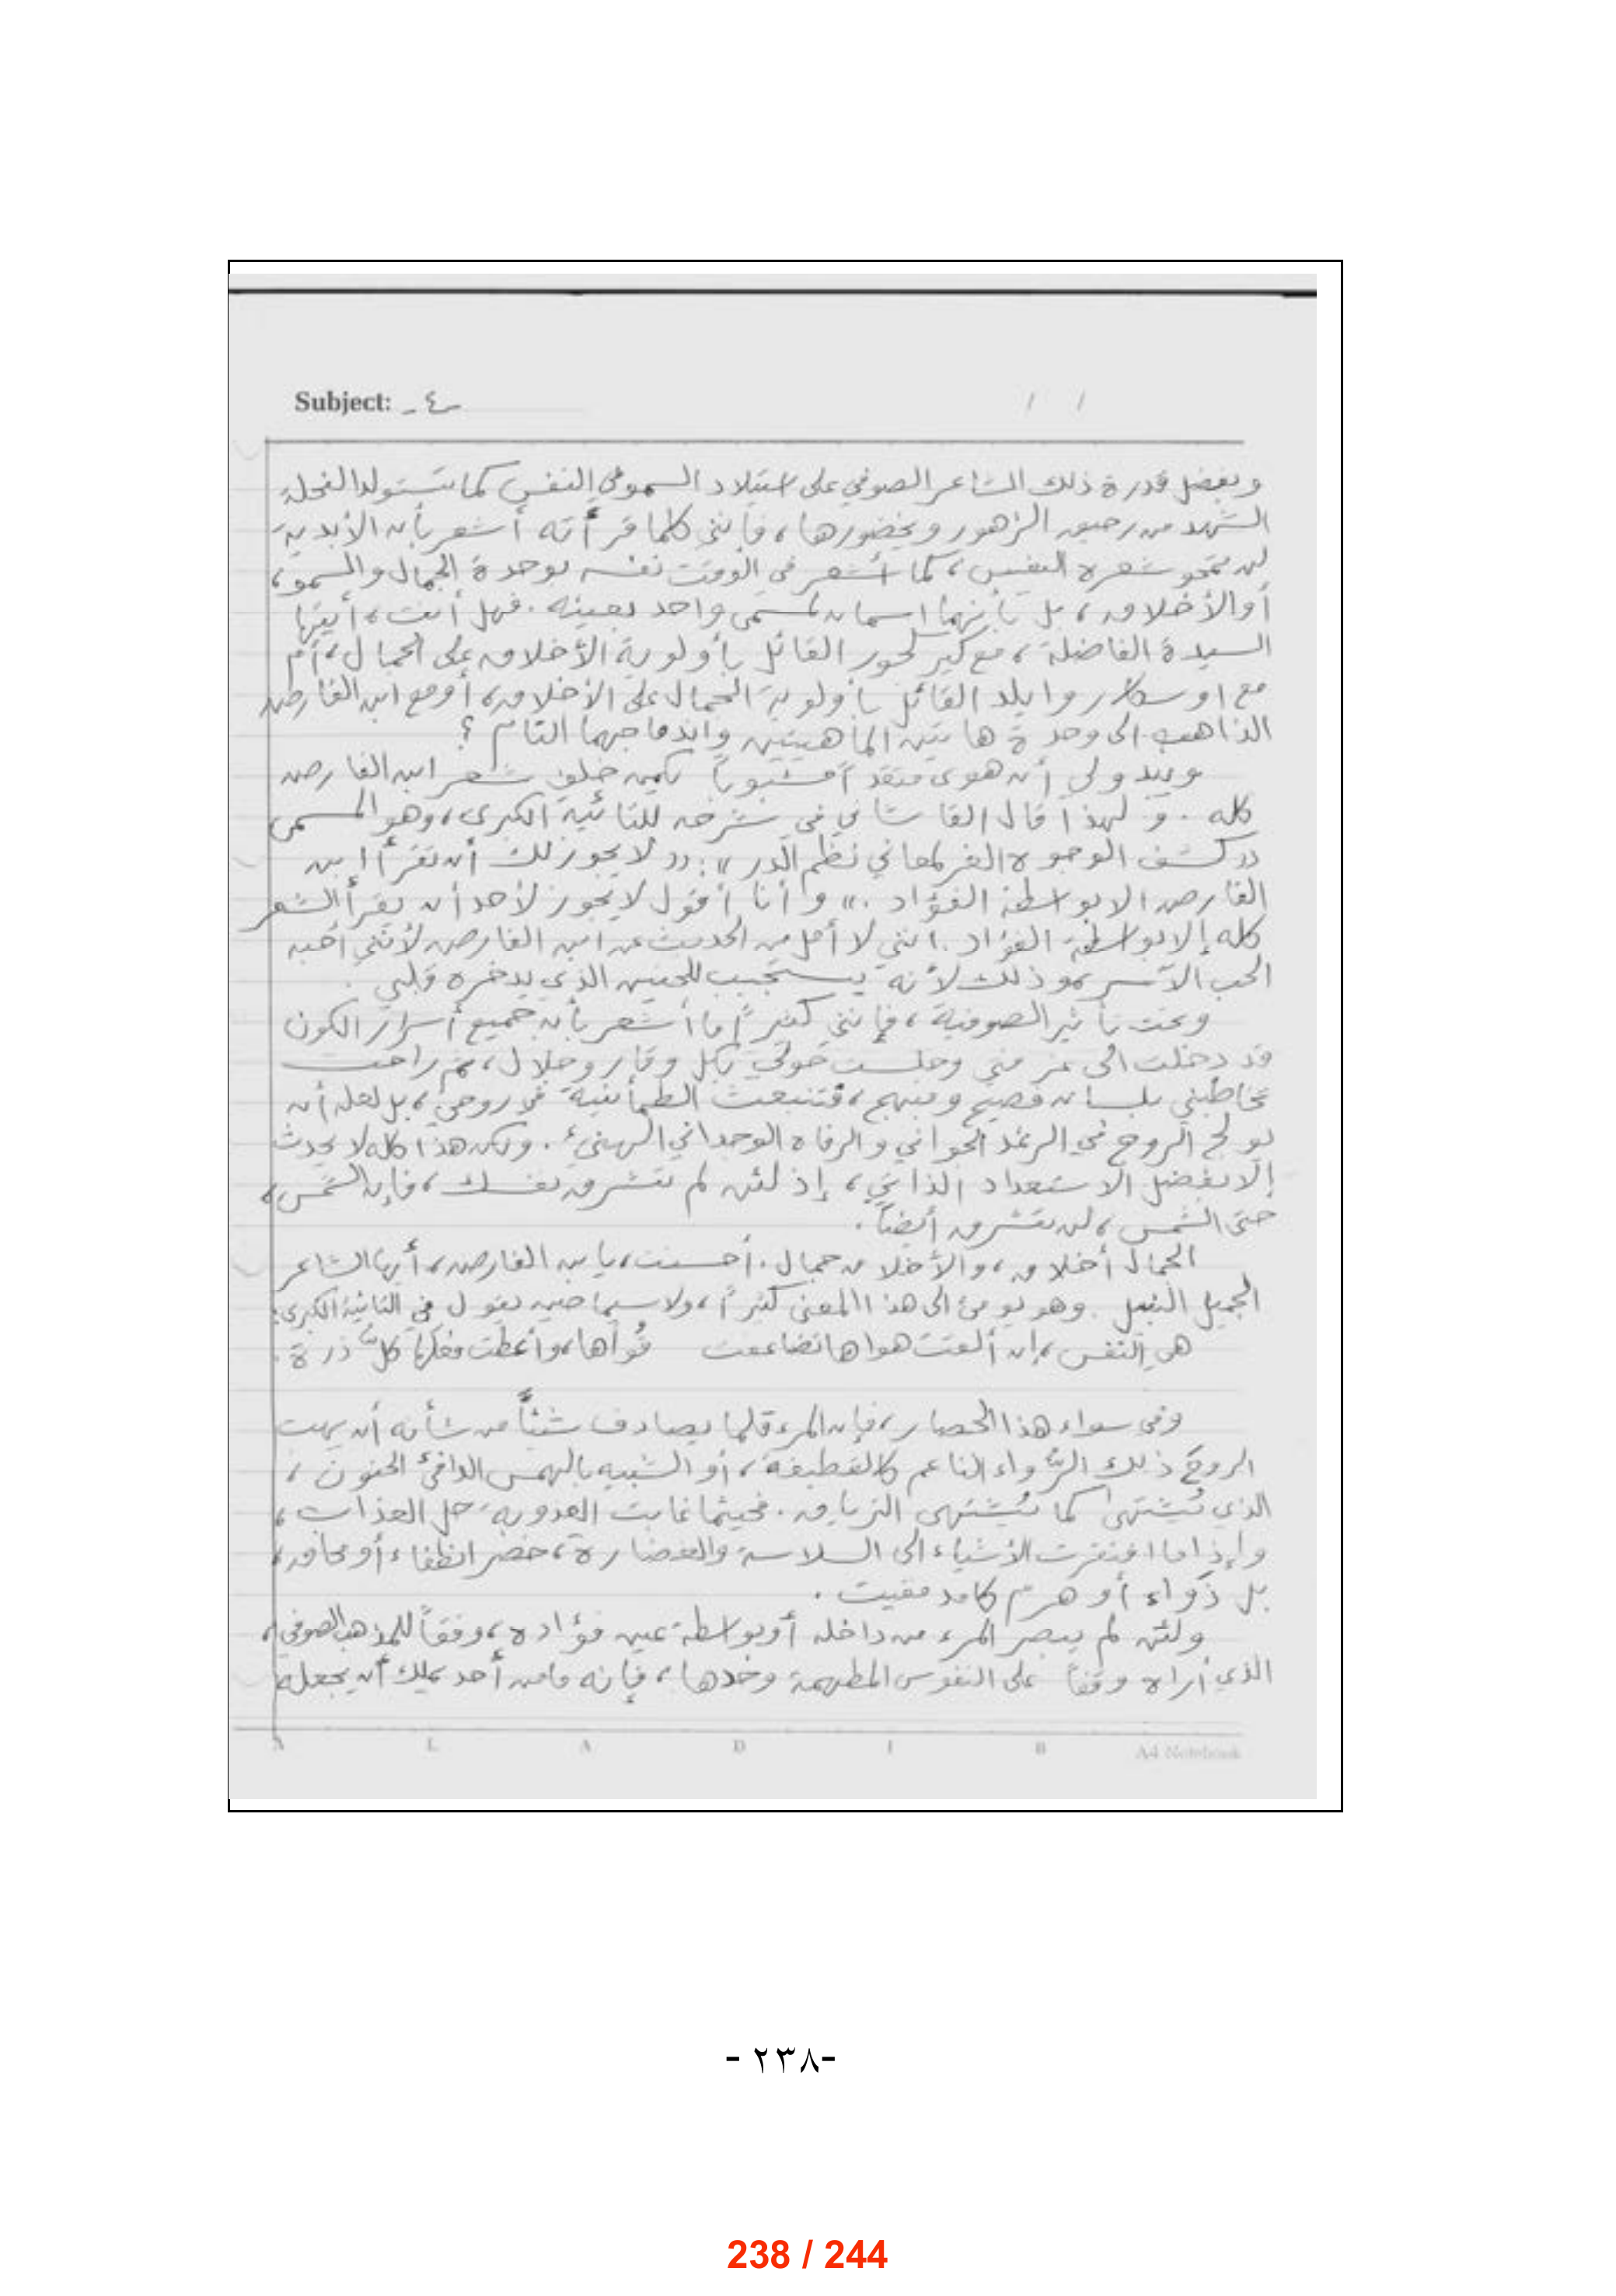 Subject: - ٤ -
/ /
وبفضل قدرة ذلك الشاعر الصوفي على استيلاد السمو في النفس كما تستولد النحلة
الشهد من رحيق الزهور ، فإنني كلما قرأته أشعر بأن الأبدية
لن تمحو شعره النفيس ، كما أشعر في الوقت نفسه بوحدة الجمال والسمو ،
أو الأخلاق ، بل بأنهما اسمان لمسمى واحد بعينه . فهل أنت ، أيتها
السيدة الفاضلة ، مع القائل بأولوية الأخلاق على الجمال ، أم
مع اوسكار وايلد القائل بأولوية الجمال على الأخلاق ، أو مع ابن الفارض
الذاهب إلى وحدة هاتين الماهيتين واندماجهما التام ؟
ويبدو لي أن هوى متقداً مشبوباً يكمن خلف شعر ابن الفارض
كله . ولهذا قال القاشاني في شرحه للتائية الكبرى ، وهو المسمى
« كشف الوجوه الغر لمعاني نظم الدر » : « لا يجوز لك أن تقرأ ابن
الفارض الا بواسطة الفؤاد . » وأنا أقول لا يجوز لأحد أن يقرأ الشعر
كله إلا بواسطة الفؤاد . انني لا أمل من الحديث عن ابن الفارض لأنني أحبه
الحب الآسر ، وذلك لأنه يستجيب للحنين الذي يدخره قلبي .
وتحت تأثير الصوفية ، فإنني كثيراً ما أشعر بأن جميع أسرار الكون
قد دخلت الى غرفتي وجلست حولي بكل وقار وجلال ، ثم راحت
تخاطبني بلسان فصيح ومبهج ، فتنبعث الطمأنينة في روحي ، بل لعله أن
يولج الروح في الرغد الجواني والرفاه الوجداني الهنيء . ولكن هذا كله لا يحدث
إلا بفضل الاستعداد الذاتي ، إذ لئن لم تشرق نفسك ، فإن الشمس ،
حتى الشمس ، لن تشرق أيضاً .
الجمال أخلاق ، والأخلاق جمال . أحسنت ، يا بن الفارض ، أيها الشاعر
الجميل النبيل . وهو يومئ الى هذا المعنى كثيراً ، ولا سيما حين يقول في التائية الكبرى :
هي النفس ، إن ألقت هواها تضاعفت قُواها ، وأعطت فعلها كلَّ ذرة .
وفي سواء هذا الحصار ، فإن المرء قلما يصادف شيئاً من شأنه أن يهب
الروح ذلك الرُّواء الناعم كالقطيفة ، أو الشبيه بالهمس الدافئ الحنون ،
الذي يُشتهى كما يُشتهى الترياق . فحيثما غابت العذوبة حل العذاب ،
وإذا ما افتقرت الأشياء الى السلاسة والغضارة ، حضر انطفاء أو محاق ،
بل ذواء أو هرم كامد مقيت .
ولئن لم يبصر المرء من داخله أو بواسطة عين فؤاده ، وفقاً للمذهب الصوفي ،
الذي أراه وقفاً على النفوس المطهمة وحدها ، فإنه ما من أحد يملك أن يجعله
A L A D I B A4 Notebook
- ٢٣٨ -
238 / 244